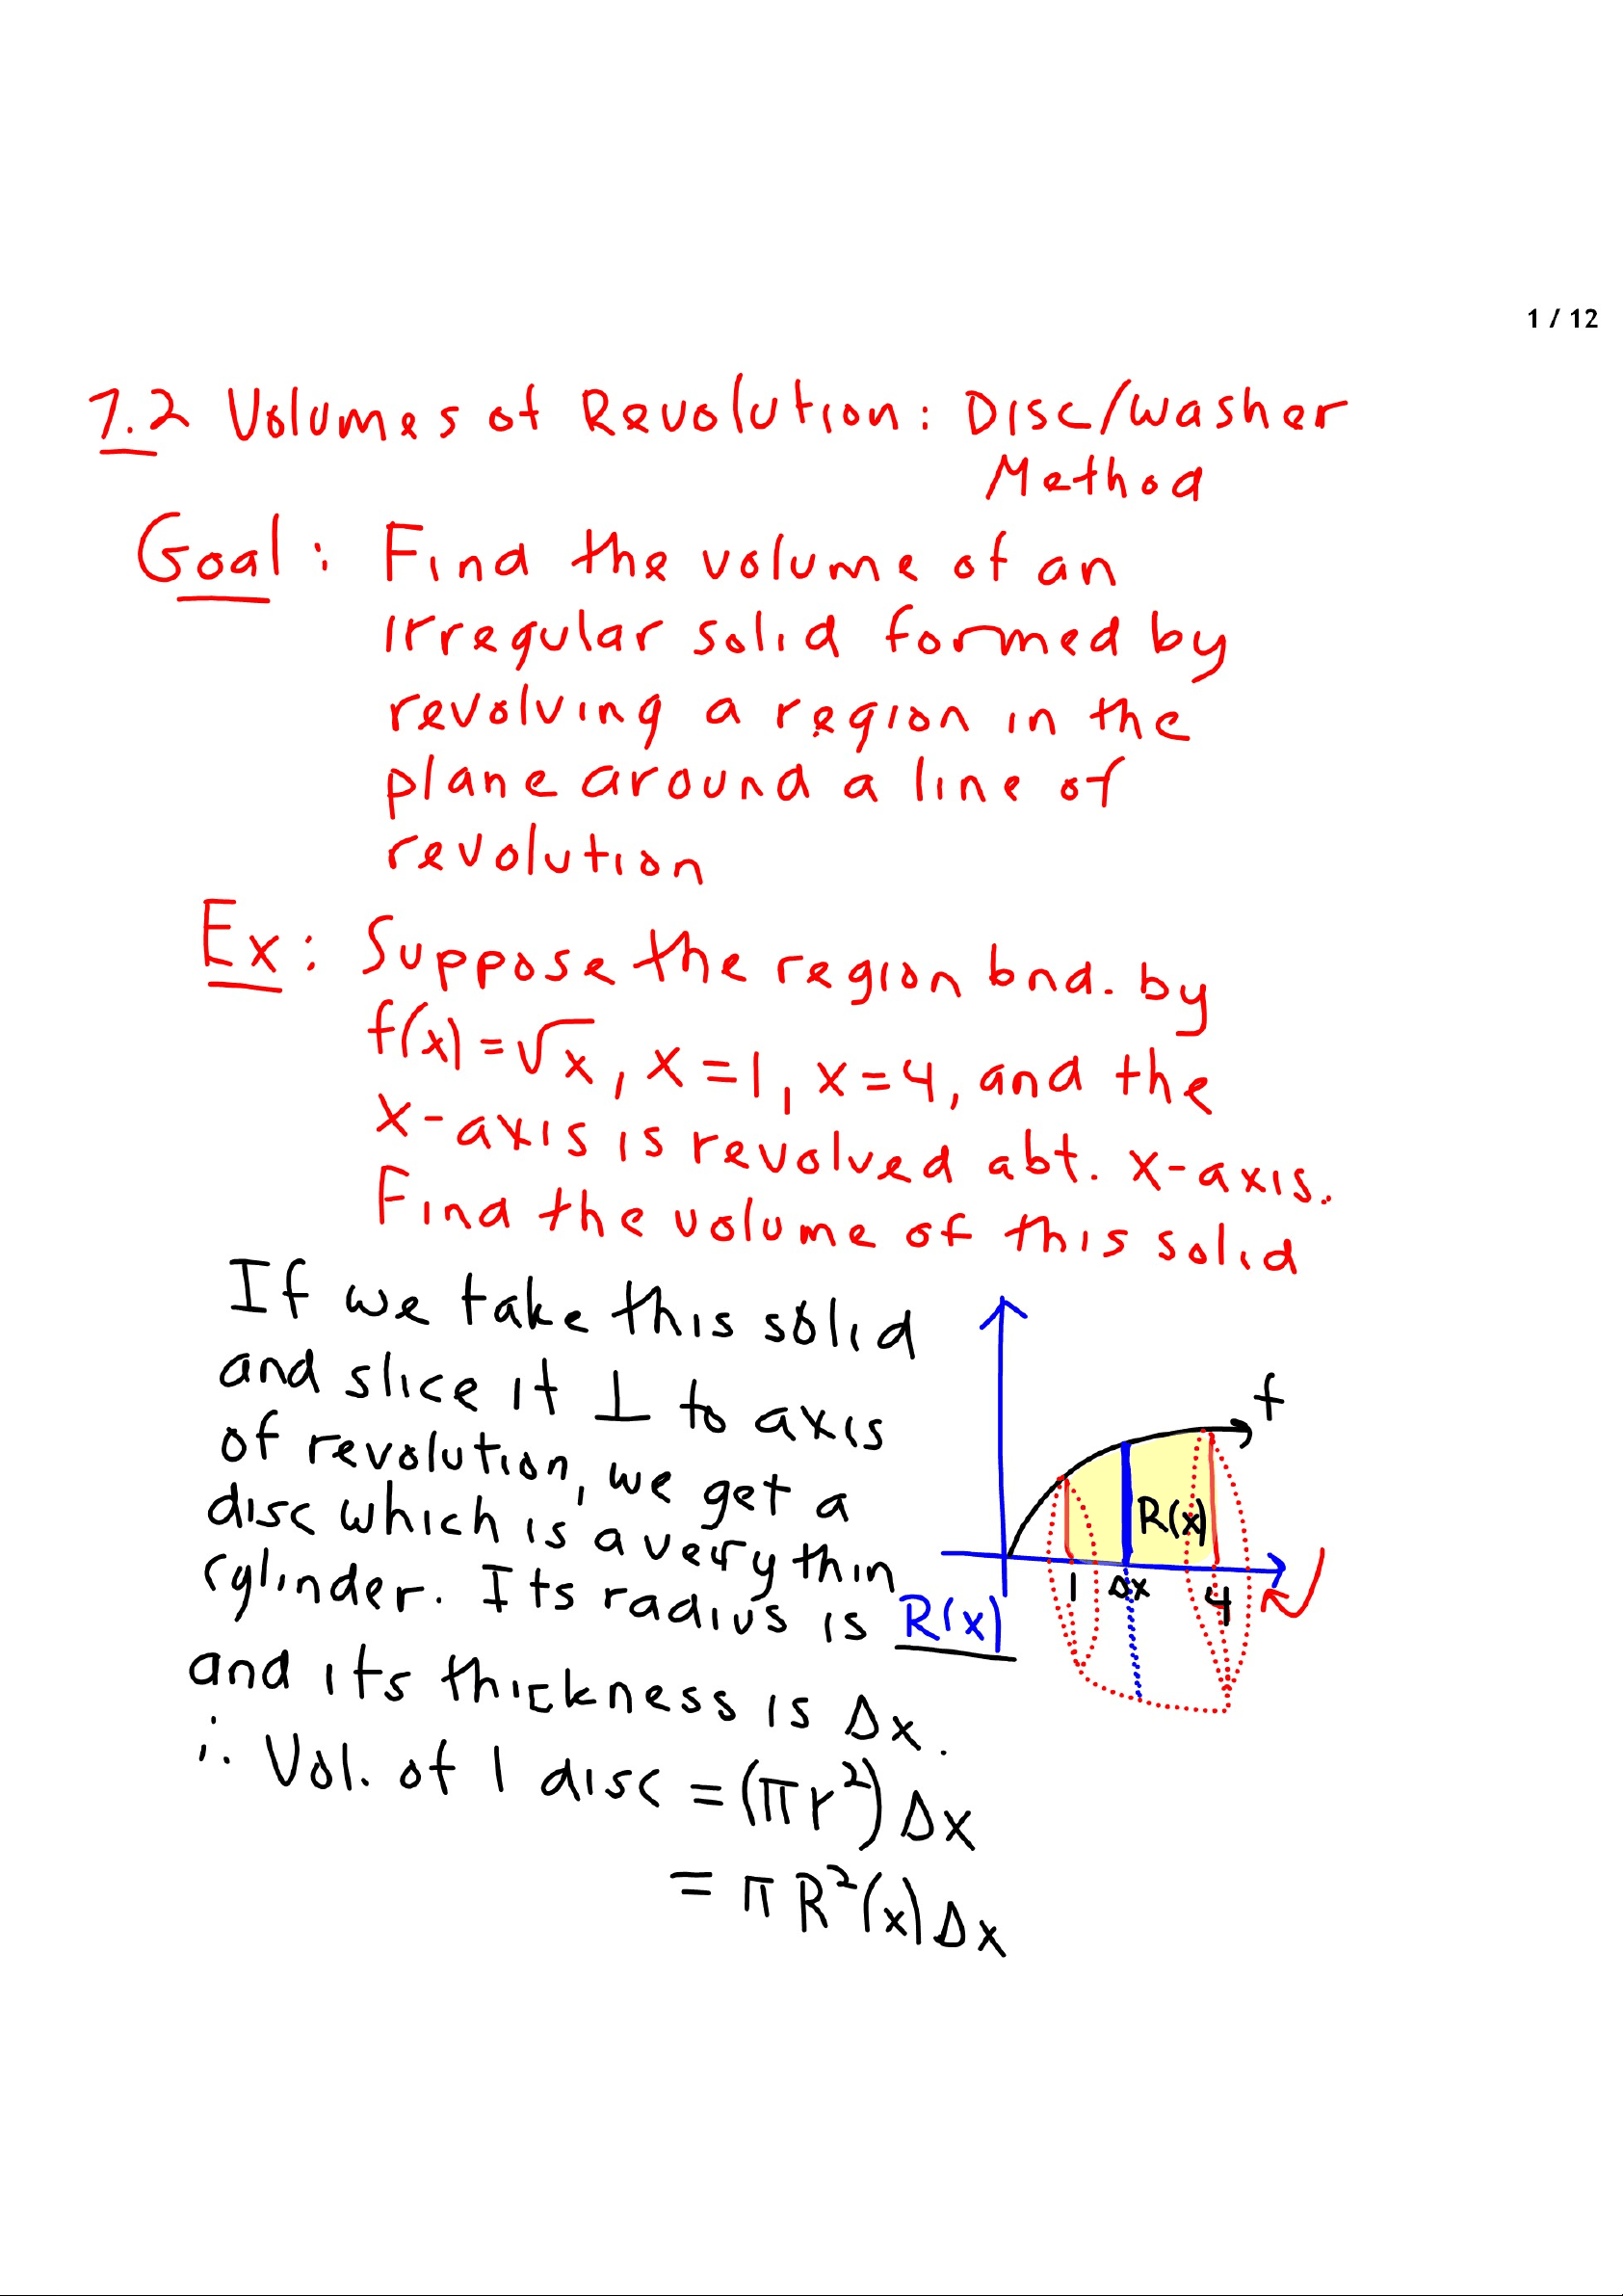 1 / 12
7.2 Volumes of Revolution: Disc/Washer
Method
Goal: Find the volume of an
irregular solid formed by
revolving a region in the
plane around a line of
revolution
Ex: Suppose the region bnd. by
f(x)=√x, x=1, x=4, and the
x-axis is revolved abt. x-axis.
Find the volume of this solid
If we take this solid
and slice it ⊥ to axis
of revolution, we get a
disc which is a very thin
cylinder. Its radius is R(x)
and its thickness is Δx.
∴ Vol. of 1 disc = (πr²)Δx
= πR²(x)Δx
f
R(x)
1 Δx 4